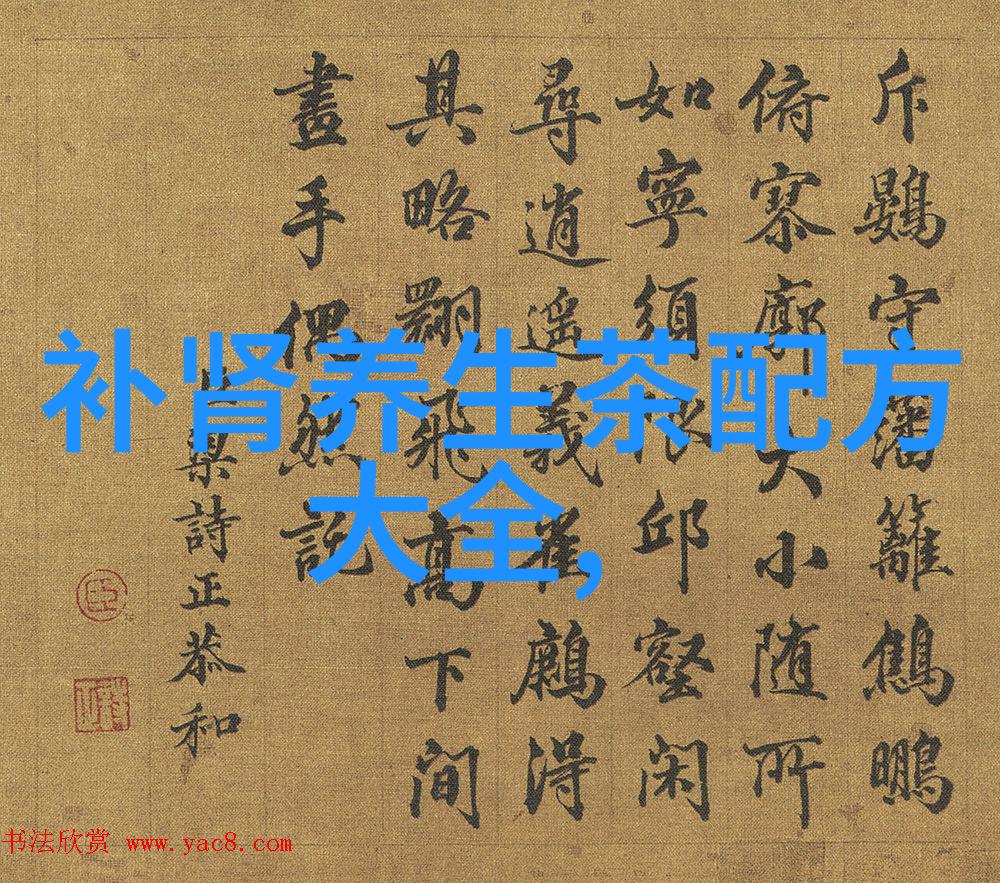 补肾养生茶配方
大全,
斥鷃守藩籬鵬
俯寥廓大小随所
如寧須限邱壑闲
尋逍遥義得
其略翻飛高下間
畫手偶然說
臣梁詩正恭和
臣
书法欣赏 www.yac8.com